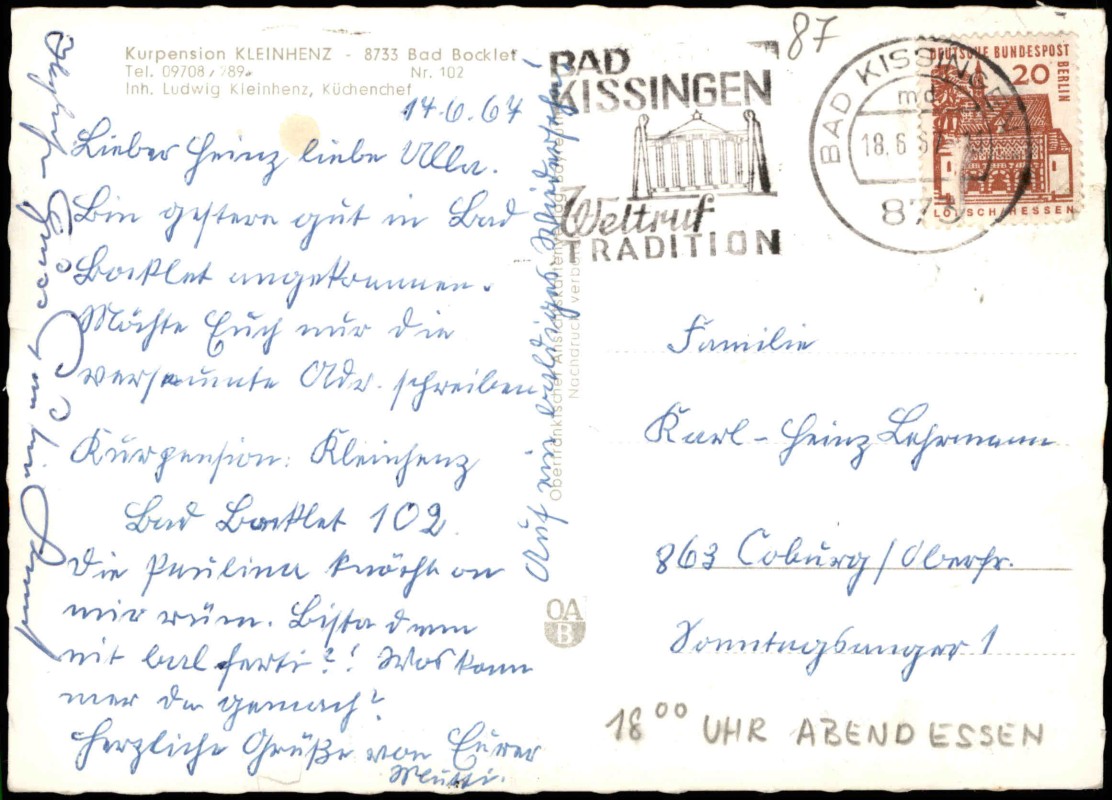 Kurpension KLEINHENZ - 8733 Bad Bocklet
Tel. 09708/289 Nr. 102
Inh. Ludwig Kleinhenz, Küchenchef
14.6.67
Lieber Heinz liebe Ulla.
Bin gestern gut in Bad
Bocklet angekommen.
Möchte Euch nur die
versäumte Adr. schreiben
Kurpension: Kleinhenz
Bad Bocklet 102.
Die Paulina knöcht on
mir rüm. Bista denn
nit bal ferti?! Wos konn
mer da gemach?
Herzliche Grüße von Eurer
Mutti.
Auf ein baldiges Wiedersehn!
Herzliche Grüße
Oberfränkischer Ansichtskartenverlag
Nachdruck verboten
OA
B
87
BAD
KISSINGEN
Weltruf
TRADITION
BAD KISSINGEN
18.6.67
873
DEUTSCHE BUNDESPOST
BERLIN
20
LORSCH/HESSEN
Familie
Karl-Heinz Lehrmann
863 Coburg/Oberfr.
Sonntagsanger 1
18 00 UHR ABENDESSEN